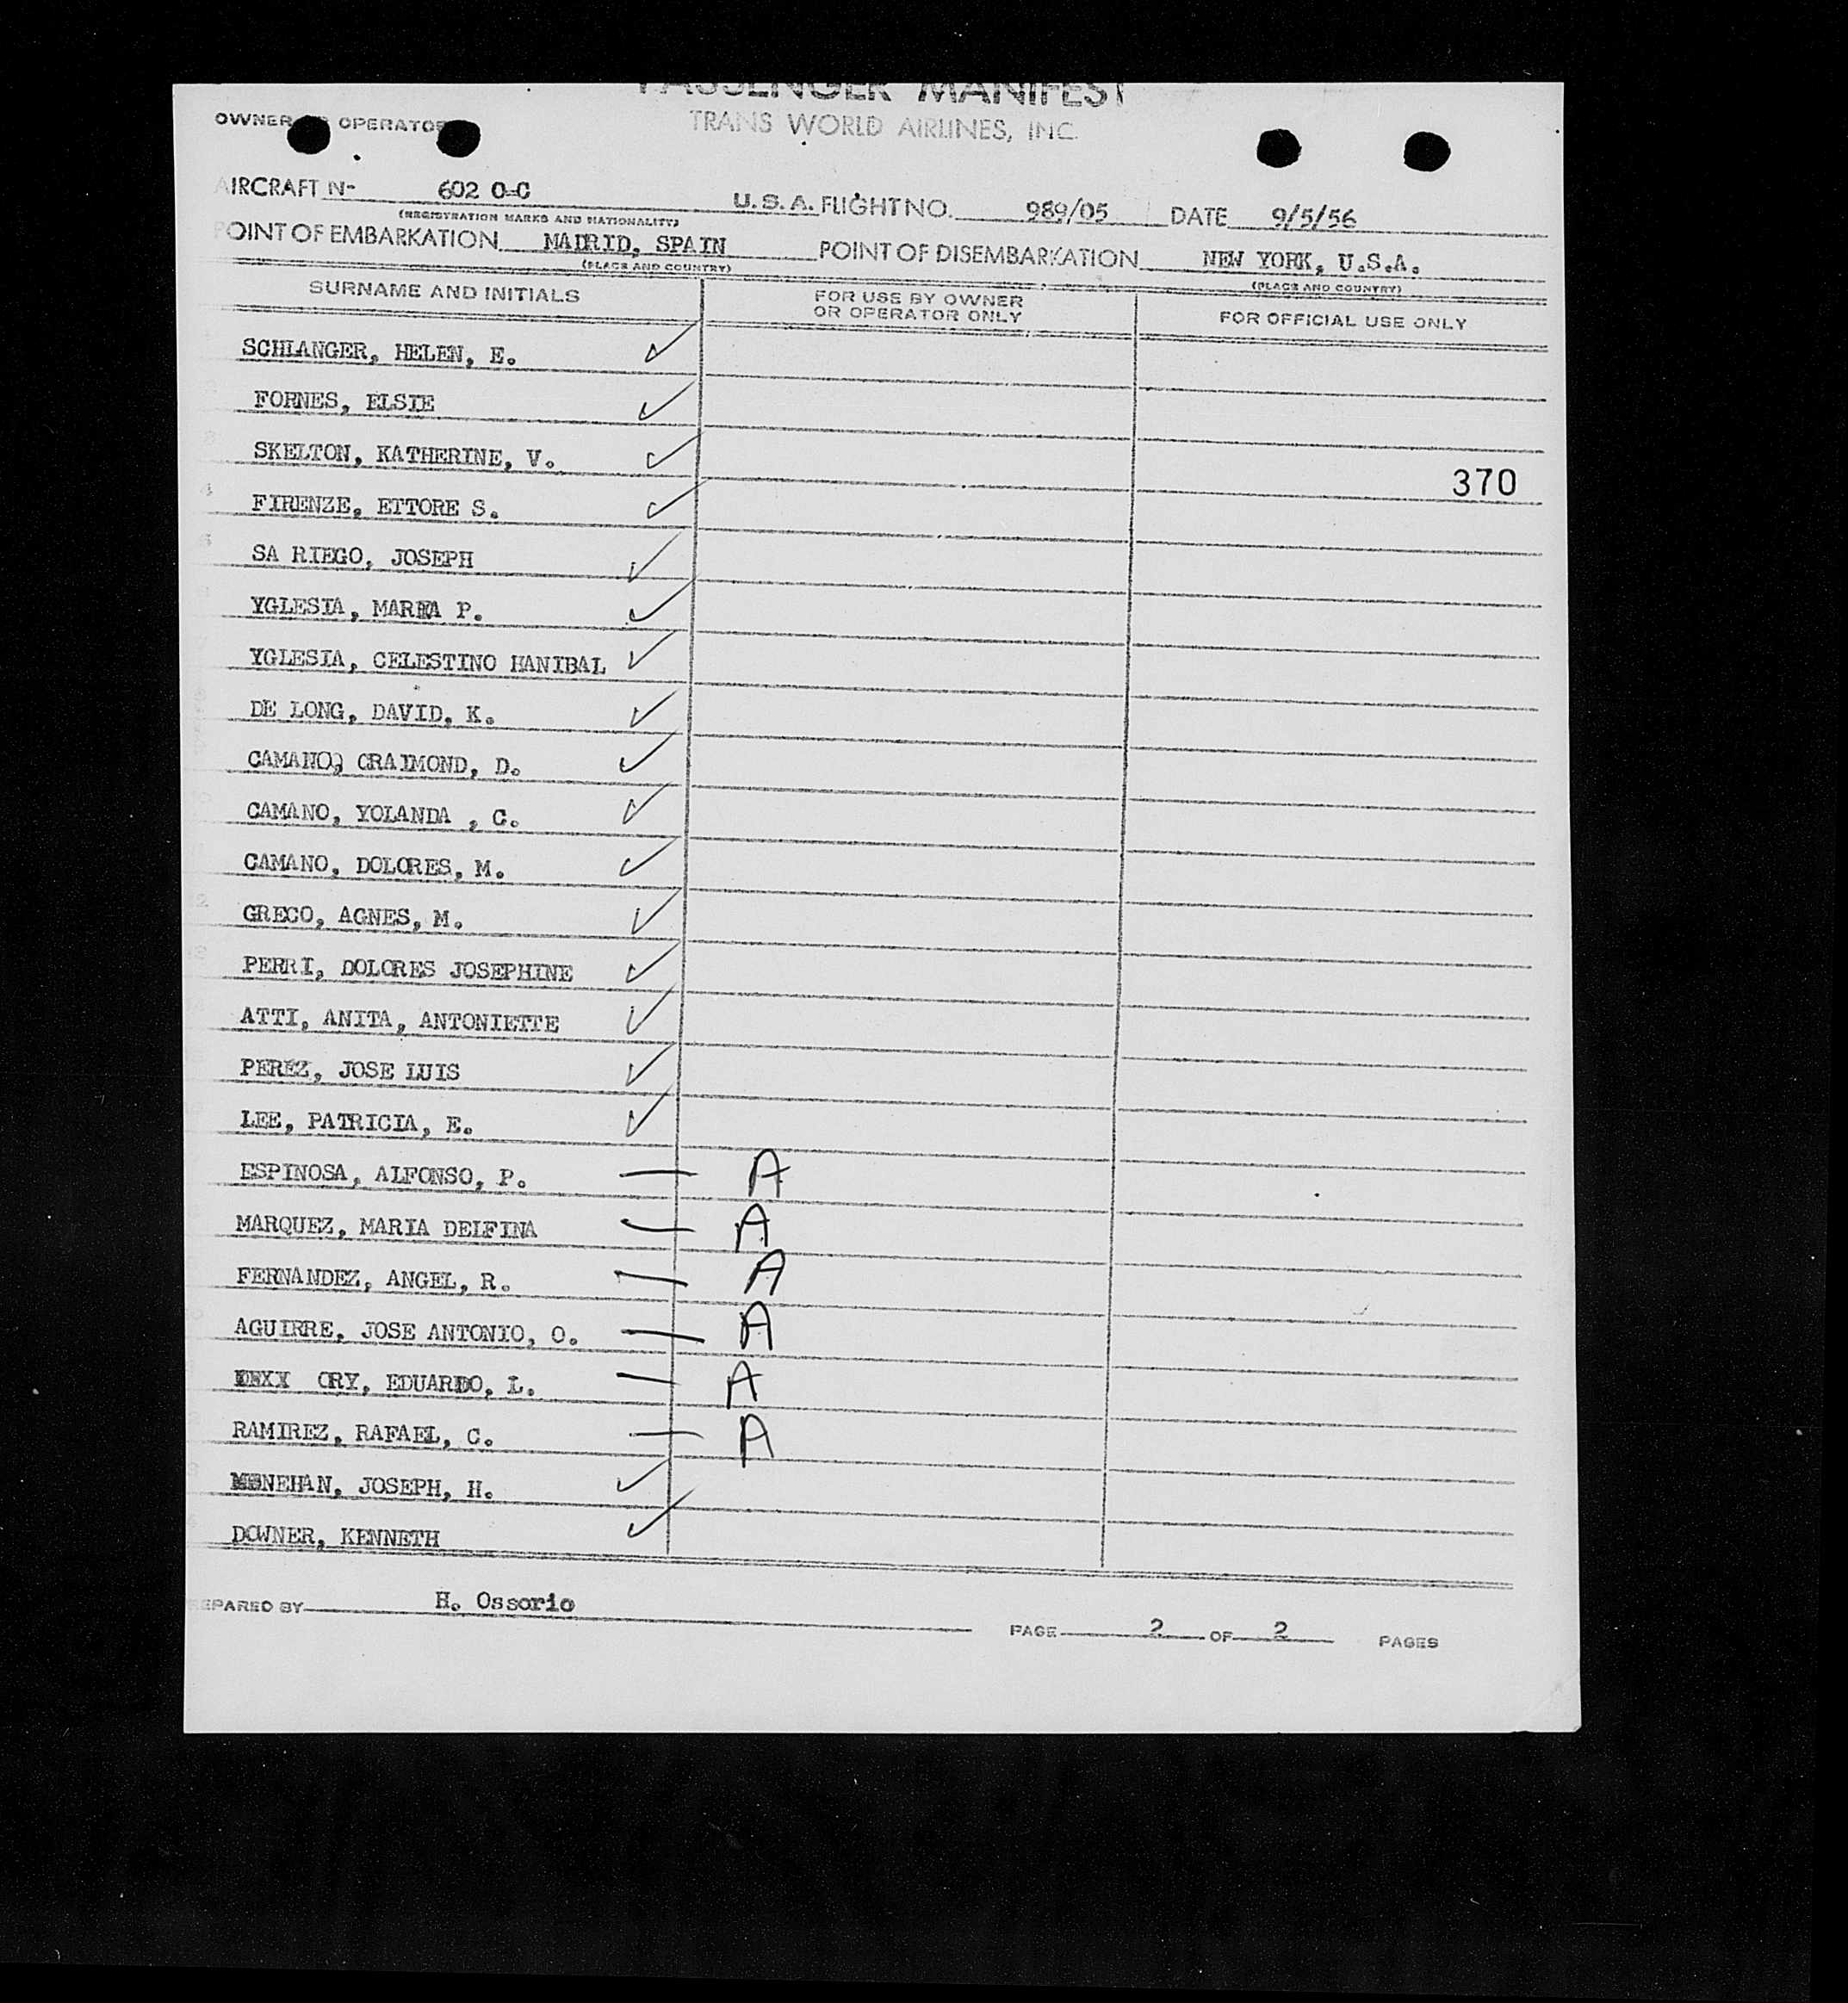 PASSENGER MANIFEST
OWNER OR OPERATOR TRANS WORLD AIRLINES, INC.
AIRCRAFT N- 602 0-C U.S.A. FLIGHT NO. 989/05 DATE 9/5/56
(REGISTRATION MARKS AND NATIONALITY)
POINT OF EMBARKATION MADRID, SPAIN POINT OF DISEMBARKATION NEW YORK, U.S.A.
(PLACE AND COUNTRY) (PLACE AND COUNTRY)
SURNAME AND INITIALS FOR USE BY OWNER OR OPERATOR ONLY FOR OFFICIAL USE ONLY
SCHLANGER, HELEN, E. ✓
FORNES, ELSIE ✓
SKELTON, KATHERINE, V. ✓ 370
FIRENZE, ETTORE S. ✓
SA RIEGO, JOSEPH ✓
YGLESIA, MARIA P. ✓
YGLESIA, CELESTINO HANIBAL ✓
DE LONG, DAVID, K. ✓
CAMANO, CRAIMOND, D. ✓
CAMANO, YOLANDA , C. ✓
CAMANO, DOLORES, M. ✓
GRECO, AGNES, M. ✓
PERRI, DOLORES JOSEPHINE ✓
ATTI, ANITA, ANTONIETTE ✓
PEREZ, JOSE LUIS ✓
LEE, PATRICIA, E. ✓
ESPINOSA, ALFONSO, P. — A
MARQUEZ, MARIA DELFINA — A
FERNANDEZ, ANGEL, R. — A
AGUIRRE, JOSE ANTONIO, O. — A
ORY, EDUARDO, L. — A
RAMIREZ, RAFAEL, C. — A
MONEHAN, JOSEPH, H. ✓
DOWNER, KENNETH ✓
PREPARED BY H. Ossorio
PAGE 2 OF 2 PAGES